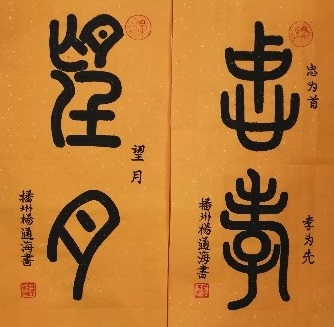 忠孝
忠为首
孝为先
播州楊通海書
望月
望月
播州楊通海書